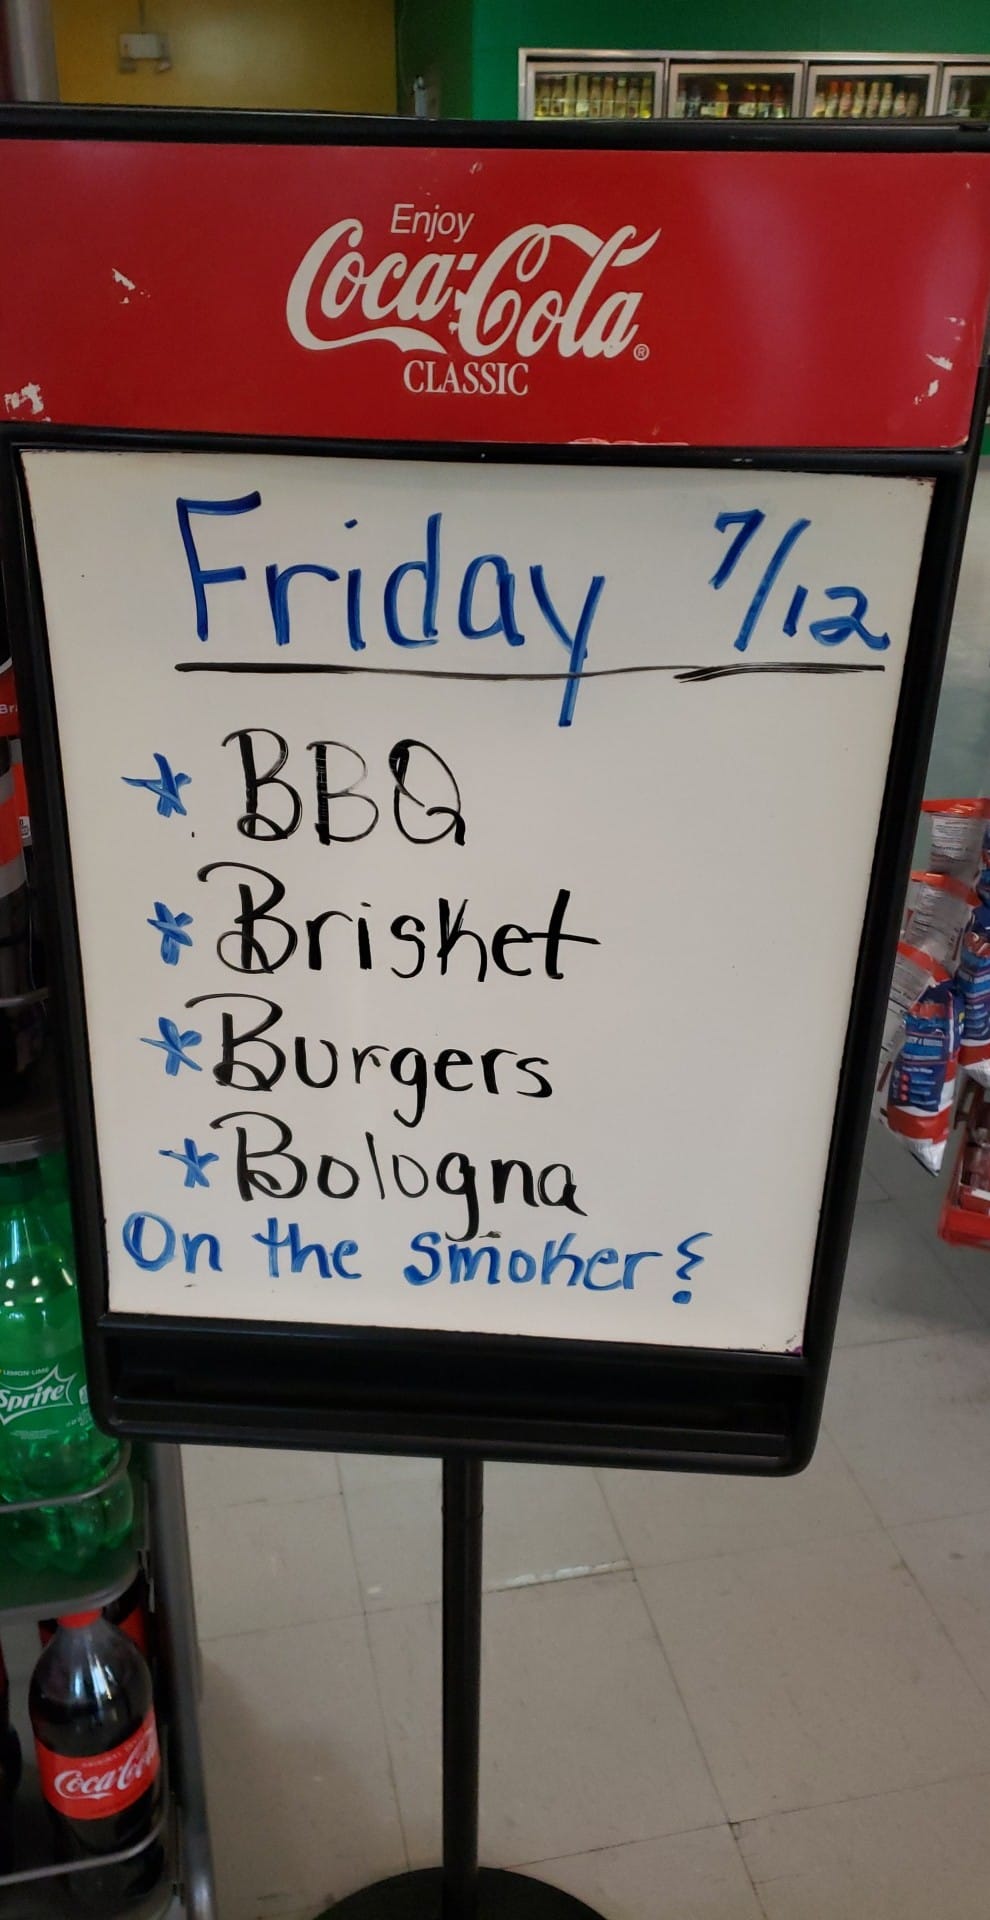 Enjoy
Coca-Cola®
CLASSIC
Friday 7/12
* BBQ
* Brisket
* Burgers
* Bologna
On the smoker!
LEMON-LIME
Sprite
Coca-Cola